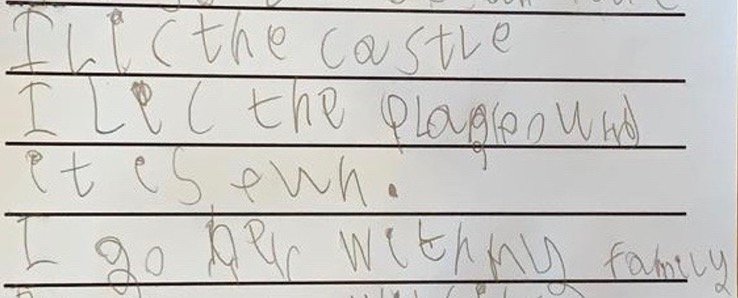 I Lic the castle
I Lec the plagrownd
et es fun.
I go her withmy family